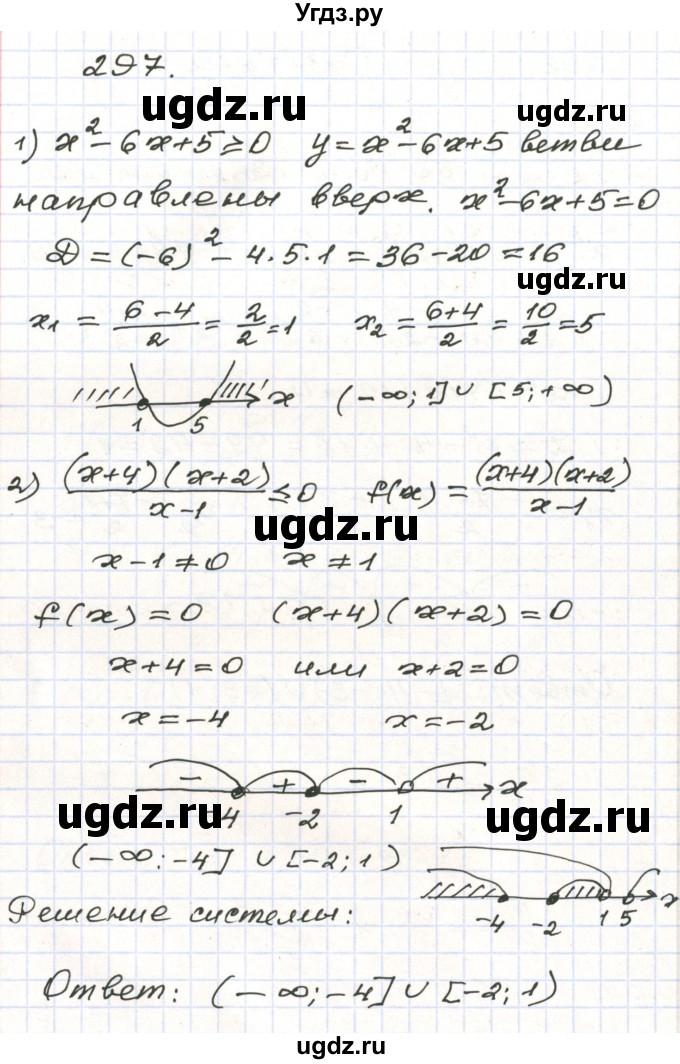 Угдз.ру
297.
ugdz.ru ugdz.ru
1) x² - 6x + 5 ≥ 0 y = x² - 6x + 5 ветви
направлены вверх. x² - 6x + 5 = 0
D = (-6)² - 4·5·1 = 36 - 20 = 16
ugdz.ru
x₁ = (6-4)/2 = 2/2 = 1 x₂ = (6+4)/2 = 10/2 = 5
1 5 x (-∞; 1] ∪ [5; +∞)
2) (x+4)(x+2)/(x-1) ≤ 0 f(x) = (x+4)(x+2)/(x-1)
ugdz.ru
x - 1 ≠ 0 x ≠ 1
f(x) = 0 (x+4)(x+2) = 0
x + 4 = 0 или x + 2 = 0
x = -4 x = -2
- + - + x
-4 -2 1
ugdz.ru ugdz.ru
(-∞; -4] ∪ [-2; 1)
-4 -2 1 5 x
Решение системы:
Ответ: (-∞; -4] ∪ [-2; 1)
ugdz.ru